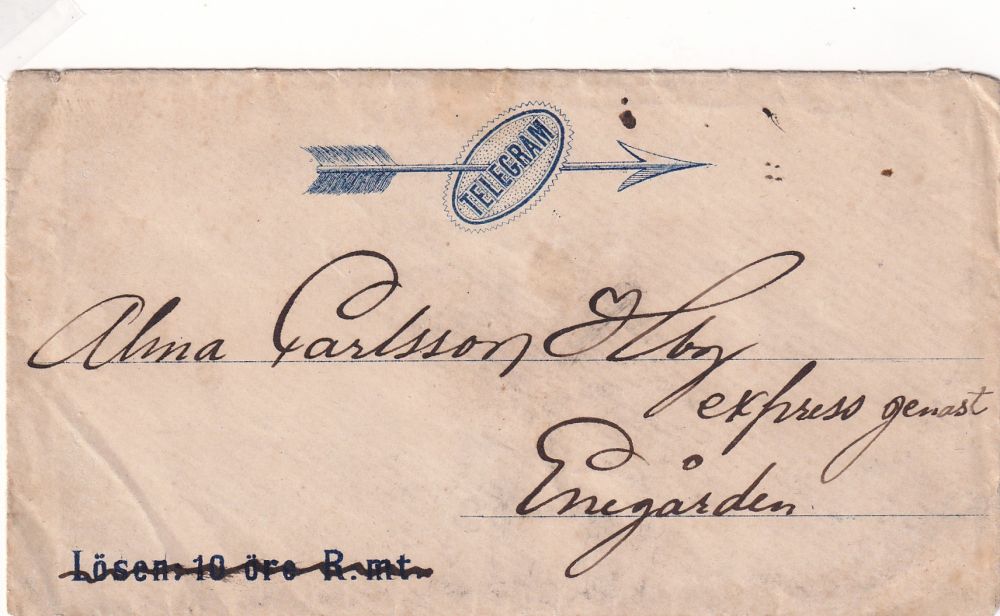 TELEGRAM
Alma Carlsson Åby
express genast
Enegården
Lösen: 10 öre R.mt.